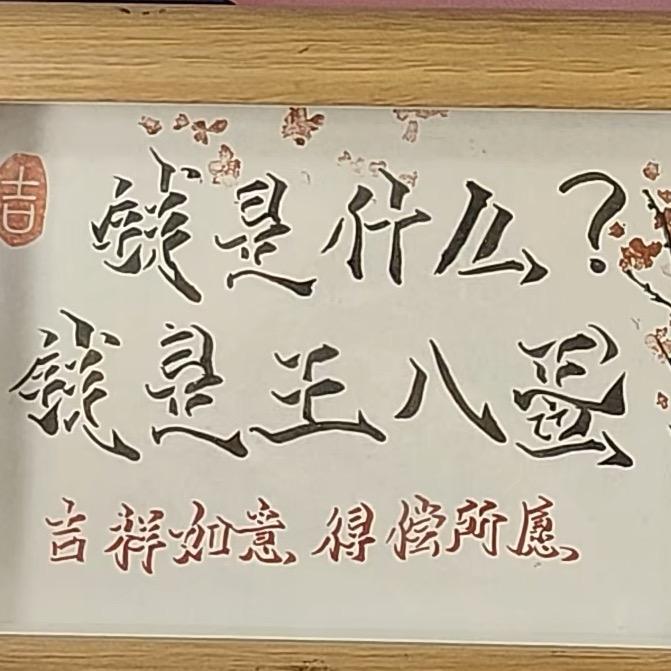 吉
钱是什么?
钱是王八蛋
吉祥如意 得偿所愿